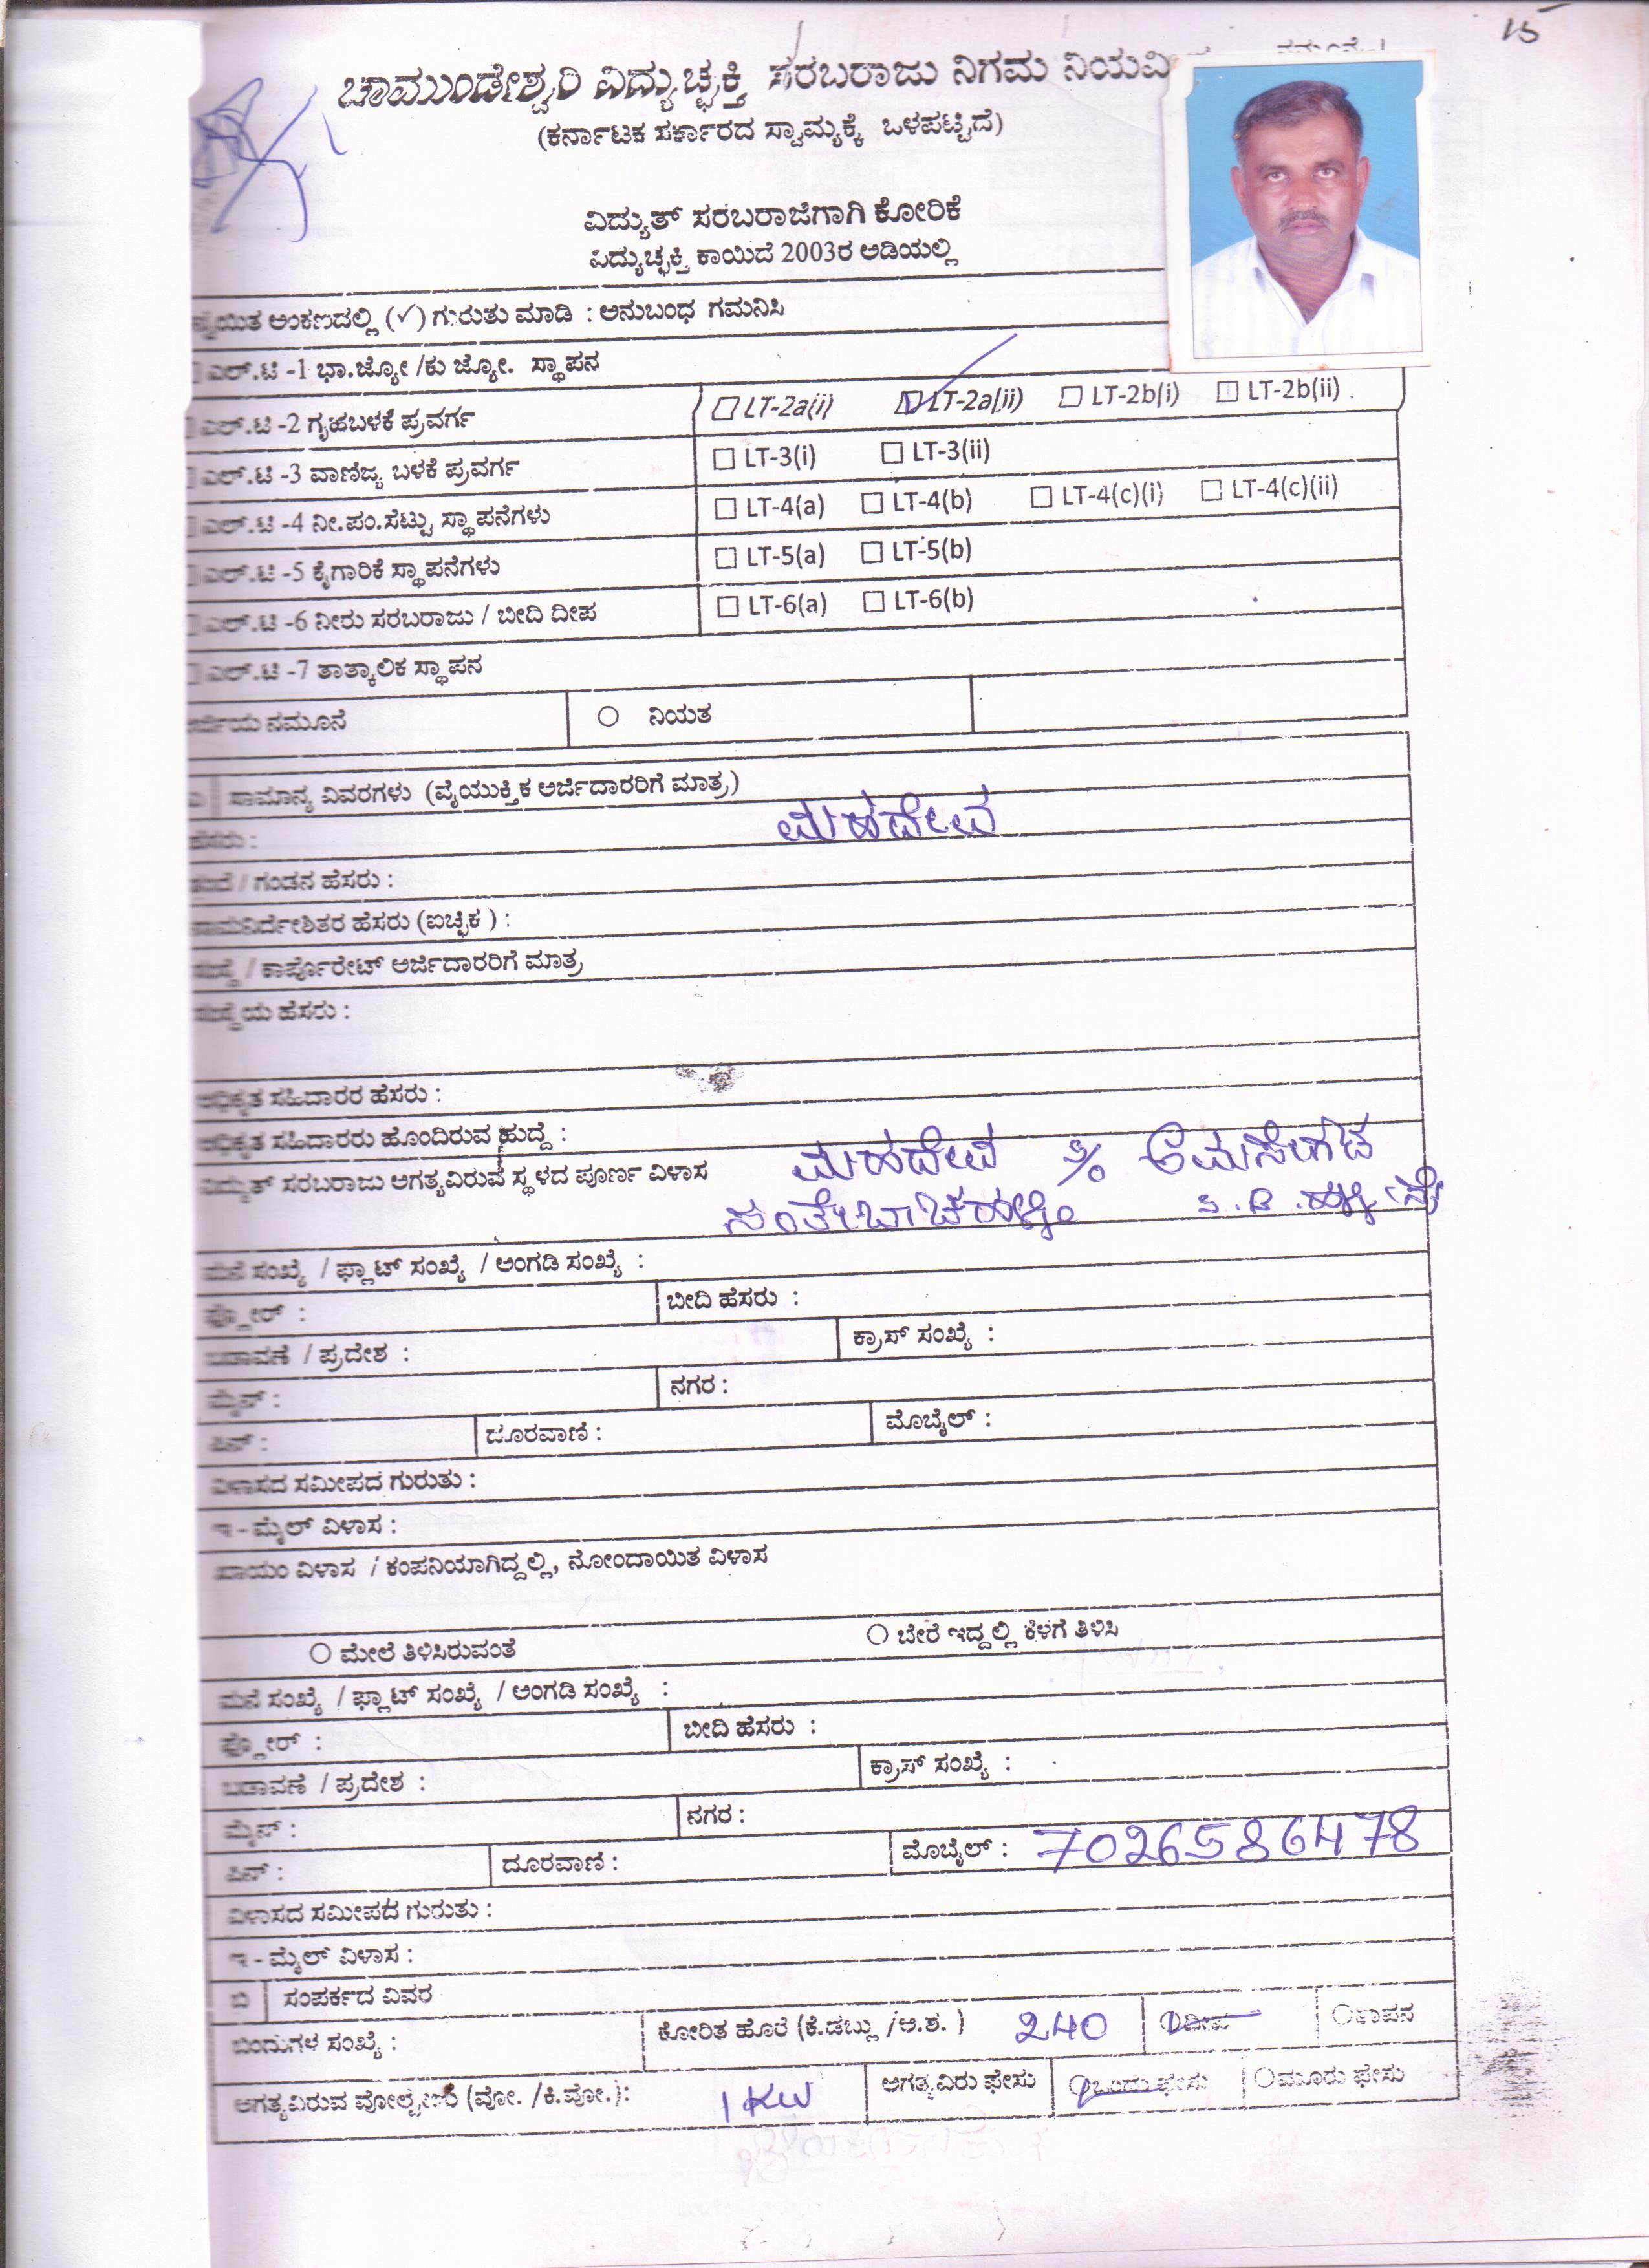 15
ಚಾಮುಂಡೇಶ್ವರಿ ವಿದ್ಯುಚ್ಛಕ್ತಿ ಸರಬರಾಜು ನಿಗಮ ನಿಯಮಿ
(ಕರ್ನಾಟಕ ಸರ್ಕಾರದ ಸ್ವಾಮ್ಯಕ್ಕೆ ಒಳಪಟ್ಟಿದೆ)
ವಿದ್ಯುತ್ ಸರಬರಾಜಿಗಾಗಿ ಕೋರಿಕೆ
ವಿದ್ಯುಚ್ಛಕ್ತಿ ಕಾಯಿದೆ 2003ರ ಅಡಿಯಲ್ಲಿ
ಅಂಕಣದಲ್ಲಿ (✓) ಗುರುತು ಮಾಡಿ : ಅನುಬಂಧ ಗಮನಿಸಿ
ಎಲ್.ಟಿ -1 ಭಾ.ಜ್ಯೋ /ಕು ಜ್ಯೋ. ಸ್ಥಾಪನ
ಎಲ್.ಟಿ -2 ಗೃಹಬಳಕೆ ಪ್ರವರ್ಗ ☐ LT-2a(i) ☑ LT-2a(ii) ☐ LT-2b(i) ☐ LT-2b(ii) .
ಎಲ್.ಟಿ -3 ವಾಣಿಜ್ಯ ಬಳಕೆ ಪ್ರವರ್ಗ ☐ LT-3(i) ☐ LT-3(ii)
ಎಲ್.ಟಿ -4 ನೀ.ಪಂ.ಸೆಟ್ಟು ಸ್ಥಾಪನೆಗಳು ☐ LT-4(a) ☐ LT-4(b) ☐ LT-4(c)(i) ☐ LT-4(c)(ii)
ಎಲ್.ಟಿ -5 ಕೈಗಾರಿಕೆ ಸ್ಥಾಪನೆಗಳು ☐ LT-5(a) ☐ LT-5(b)
ಎಲ್.ಟಿ -6 ನೀರು ಸರಬರಾಜು / ಬೀದಿ ದೀಪ ☐ LT-6(a) ☐ LT-6(b)
ಎಲ್.ಟಿ -7 ತಾತ್ಕಾಲಿಕ ಸ್ಥಾಪನ
ಅರ್ಜಿಯ ನಮೂನೆ ○ ನಿಯತ
ಎ ಸಾಮಾನ್ಯ ವಿವರಗಳು (ವೈಯುಕ್ತಿಕ ಅರ್ಜಿದಾರರಿಗೆ ಮಾತ್ರ)
ಹೆಸರು : ಮಹದೇವ
ತಂದೆ / ಗಂಡನ ಹೆಸರು :
ನಾಮನಿರ್ದೇಶಿತರ ಹೆಸರು (ಐಚ್ಛಿಕ ) :
ಸಂಸ್ಥೆ / ಕಾರ್ಪೊರೇಟ್ ಅರ್ಜಿದಾರರಿಗೆ ಮಾತ್ರ
ಸಂಸ್ಥೆಯ ಹೆಸರು :
ಅಧಿಕೃತ ಸಹಿದಾರರ ಹೆಸರು :
ಅಧಿಕೃತ ಸಹಿದಾರರು ಹೊಂದಿರುವ ಹುದ್ದೆ :
ವಿದ್ಯುತ್ ಸರಬರಾಜು ಅಗತ್ಯವಿರುವ ಸ್ಥಳದ ಪೂರ್ಣ ವಿಳಾಸ ಮಹದೇವ S/o
ಸಂತೇಬಾಚಹಳ್ಳಿ
ಮನೆ ಸಂಖ್ಯೆ / ಫ್ಲಾಟ್ ಸಂಖ್ಯೆ / ಅಂಗಡಿ ಸಂಖ್ಯೆ :
ಫ್ಲೋರ್ : ಬೀದಿ ಹೆಸರು :
ಬಡಾವಣೆ / ಪ್ರದೇಶ : ಕ್ರಾಸ್ ಸಂಖ್ಯೆ :
ಮೈನ್ : ನಗರ :
ಪಿನ್ : ದೂರವಾಣಿ : ಮೊಬೈಲ್ :
ವಿಳಾಸದ ಸಮೀಪದ ಗುರುತು :
ಇ - ಮೈಲ್ ವಿಳಾಸ :
ಖಾಯಂ ವಿಳಾಸ / ಕಂಪನಿಯಾಗಿದ್ದಲ್ಲಿ, ನೋಂದಾಯಿತ ವಿಳಾಸ
○ ಮೇಲೆ ತಿಳಿಸಿರುವಂತೆ ○ ಬೇರೆ ಇದ್ದಲ್ಲಿ ಕೆಳಗೆ ತಿಳಿಸಿ
ಮನೆ ಸಂಖ್ಯೆ / ಫ್ಲಾಟ್ ಸಂಖ್ಯೆ / ಅಂಗಡಿ ಸಂಖ್ಯೆ :
ಫ್ಲೋರ್ : ಬೀದಿ ಹೆಸರು :
ಬಡಾವಣೆ / ಪ್ರದೇಶ : ಕ್ರಾಸ್ ಸಂಖ್ಯೆ :
ಮೈನ್ : ನಗರ :
ಪಿನ್ : ದೂರವಾಣಿ : ಮೊಬೈಲ್ : 7026586478
ವಿಳಾಸದ ಸಮೀಪದ ಗುರುತು :
ಇ - ಮೈಲ್ ವಿಳಾಸ :
ಬಿ ಸಂಪರ್ಕದ ವಿವರ
ಬಿಂದುಗಳ ಸಂಖ್ಯೆ : ಕೋರಿತ ಹೊರೆ (ಕೆ.ಡಬ್ಲು /ಅ.ಶ. ) 240 ದೀಪ ○ತಾಪನ
ಅಗತ್ಯವಿರುವ ವೋಲ್ಟೇಜು (ವೋ. /ಕಿ.ವೋ.): 1 KW ಅಗತ್ಯವಿರು ಫೇಸು ○ಒಂದು ಫೇಸು ○ಮೂರು ಫೇಸು